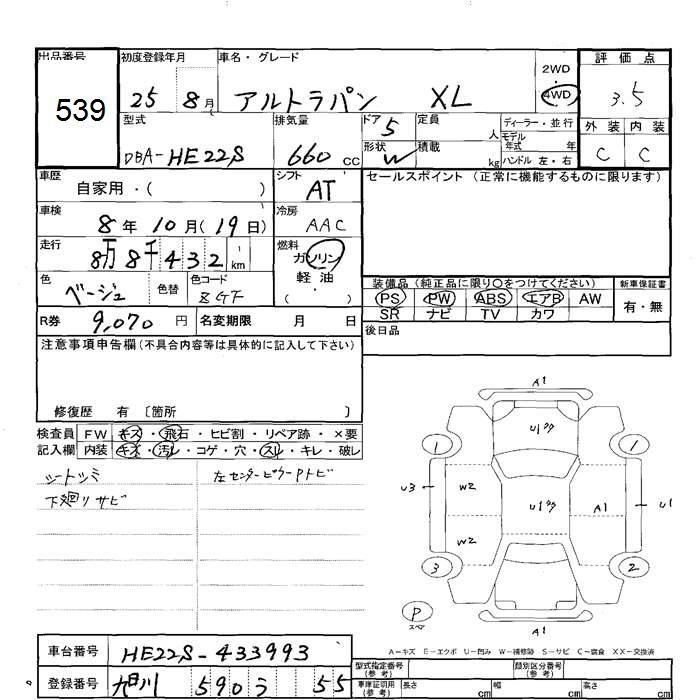 出品番号 初度登録年月 車名・グレード 2WD 評価点
539 25 8月 アルトラパン XL 4WD 3.5
型式 排気量 ドア 5 定員 人 ディーラー・並行 外装 内装
DBA-HE22S 660cc 形状 W 積載 kg モデル年式 年 ハンドル 左・右 C C
車歴 自家用・( ) シフト AT セールスポイント (正常に機能するものに限ります)
車検 8年 10月(19日) 冷房 AAC
走行 8万8千432km 燃料 ガソリン
軽油・( )
色 ベージュ 色替 色コード
装備品 (純正品に限り○をつけてください) 新車保証書
PS PW ABS エアB AW 有・無
SR ナビ TV カワ
R券 9,070円 名変期限 月 日 後日品
注意事項申告欄(不具合内容等は具体的に記入して下さい)
修復歴 有 〔箇所 〕
検査員 FW キズ・飛石・ヒビ割・リペア跡・×要
記入欄 内装 キズ・汚レ・コゲ・穴・スレ・キレ・破レ
左センターピラーPトビ
下廻りサビ
A1
U1
1 1
U3 W2 U1 A1 U1
W2
3 2
P
スペア
A1
A=キズ E=エクボ U=凹み W=補修跡 S=サビ C=腐食 XX=交換済
車台番号 HE22S-433993
登録番号 旭川 590 う 55
型式指定番号(参考) 類別区分番号(参考)
車庫証明用(参考) 長さ cm 幅 cm 高さ cm